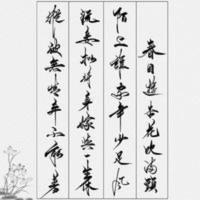 春日遊杏花吹满頭
陌上誰家年少足風
流妾擬將身嫁與一生休
縱被無情弃不能羞